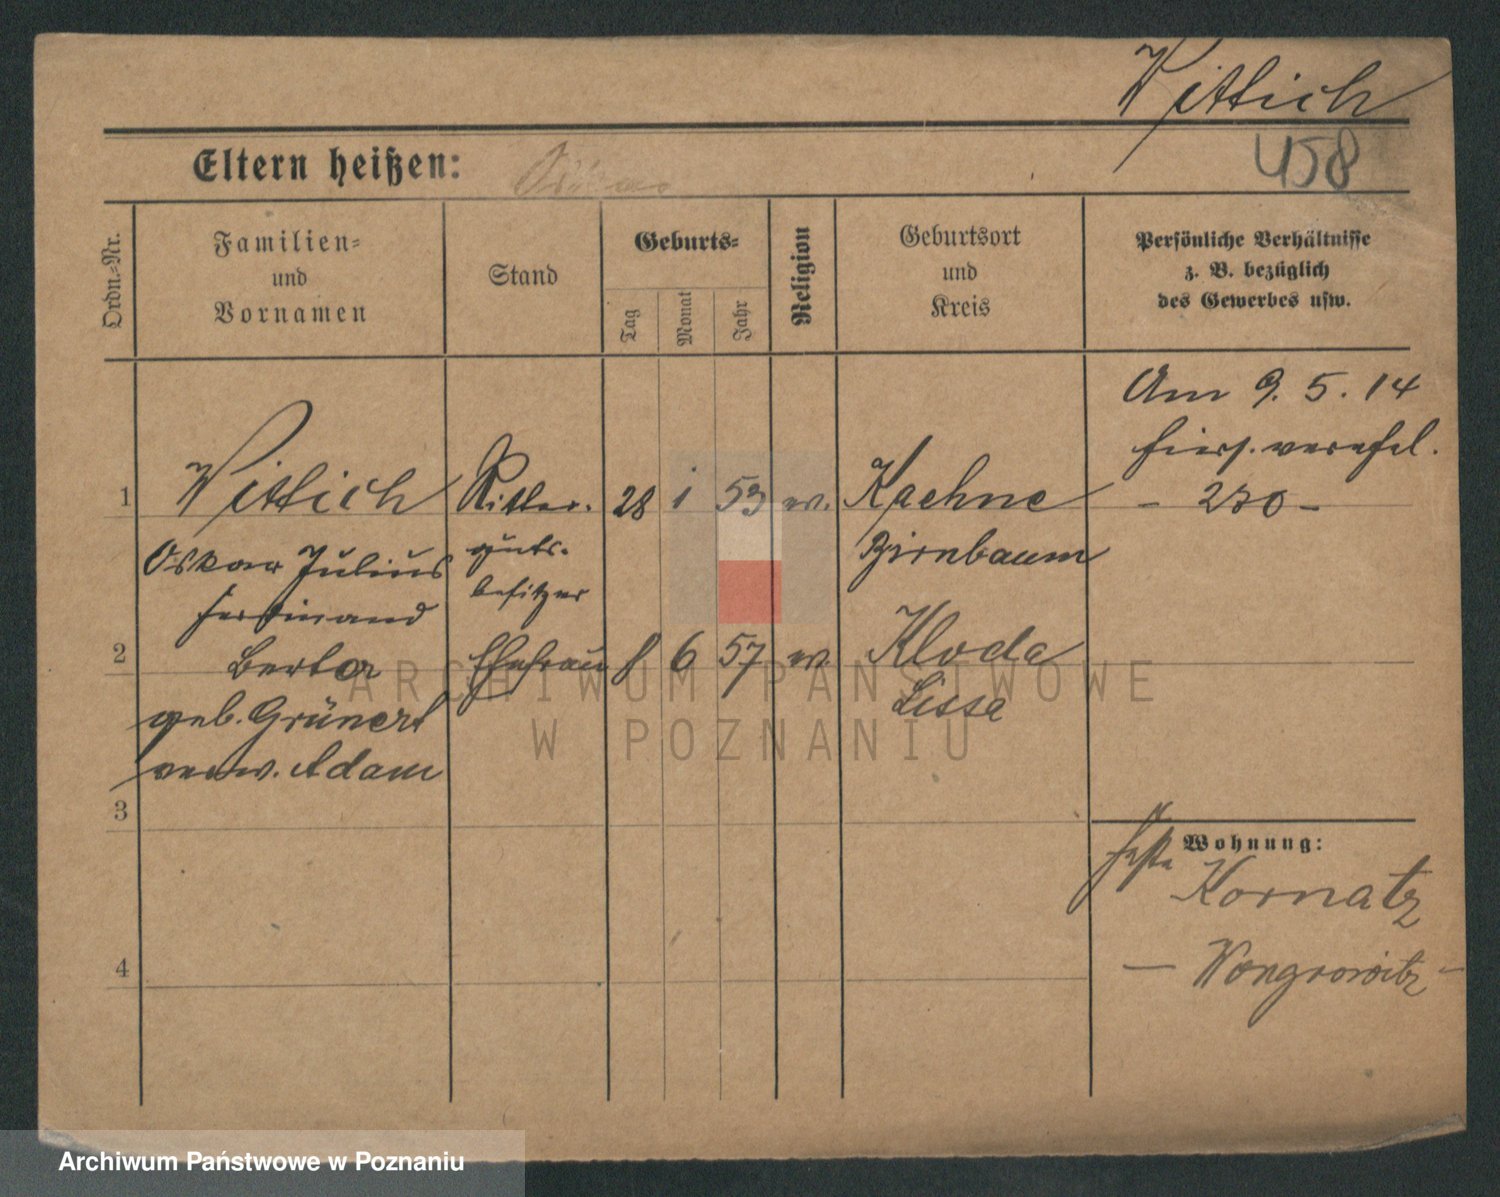 Wittich
458
Eltern heißen:
Ordn.-Nr.
Familien-
und
Vornamen
Stand
Geburts-
Tag
Monat
Jahr
Religion
Geburtsort
und
Kreis
Persönliche Verhältnisse
z. B. bezüglich
des Gewerbes usw.
Am 9. 5. 14
- 230 -
1 Wittich Ritter- 28 1 53 ev. Kaehne
Oskar Julius guts- Birnbaum
Ferdinand besitzer
2 Berta Ehefrau 8 6 57 ev. Kloda
geb. Grünert Lissa
verw. Adam
3
Wohnung:
Kornatz
4
- Wongrowitz -
ARCHIWUM PAŃSTWOWE
W POZNANIU
Archiwum Państwowe w Poznaniu